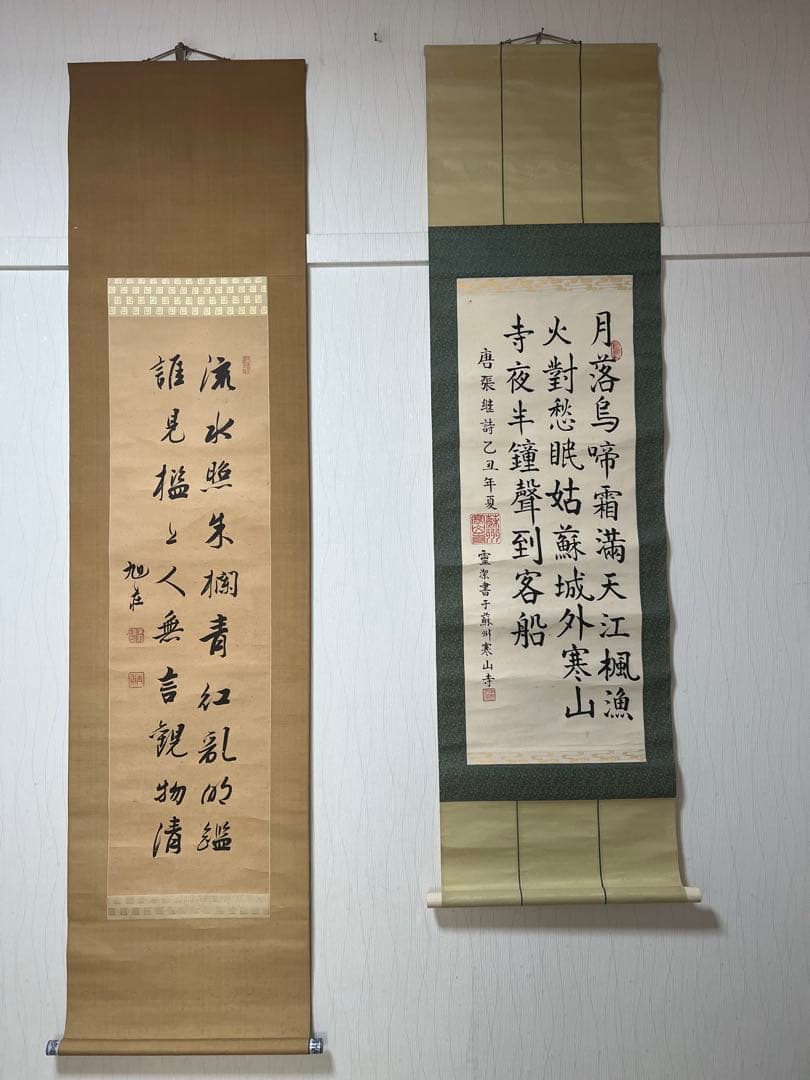 月落烏啼霜滿天江楓漁
火對愁眠姑蘇城外寒山
寺夜半鐘聲到客船
唐張继詩乙丑年夏
靈潔書于蘇州寒山寺
流水照朱欄青紅乱明鑑
誰見檻上人無言觀物清
旭荘